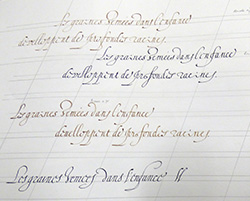 les graines semées dans l'enfance
développent de profondes racines
les graines semées dans l'enfance
développent de profondes racines
les graines semées dans l'enfance
développent de profondes racines
Les graines semées dans l'enfance